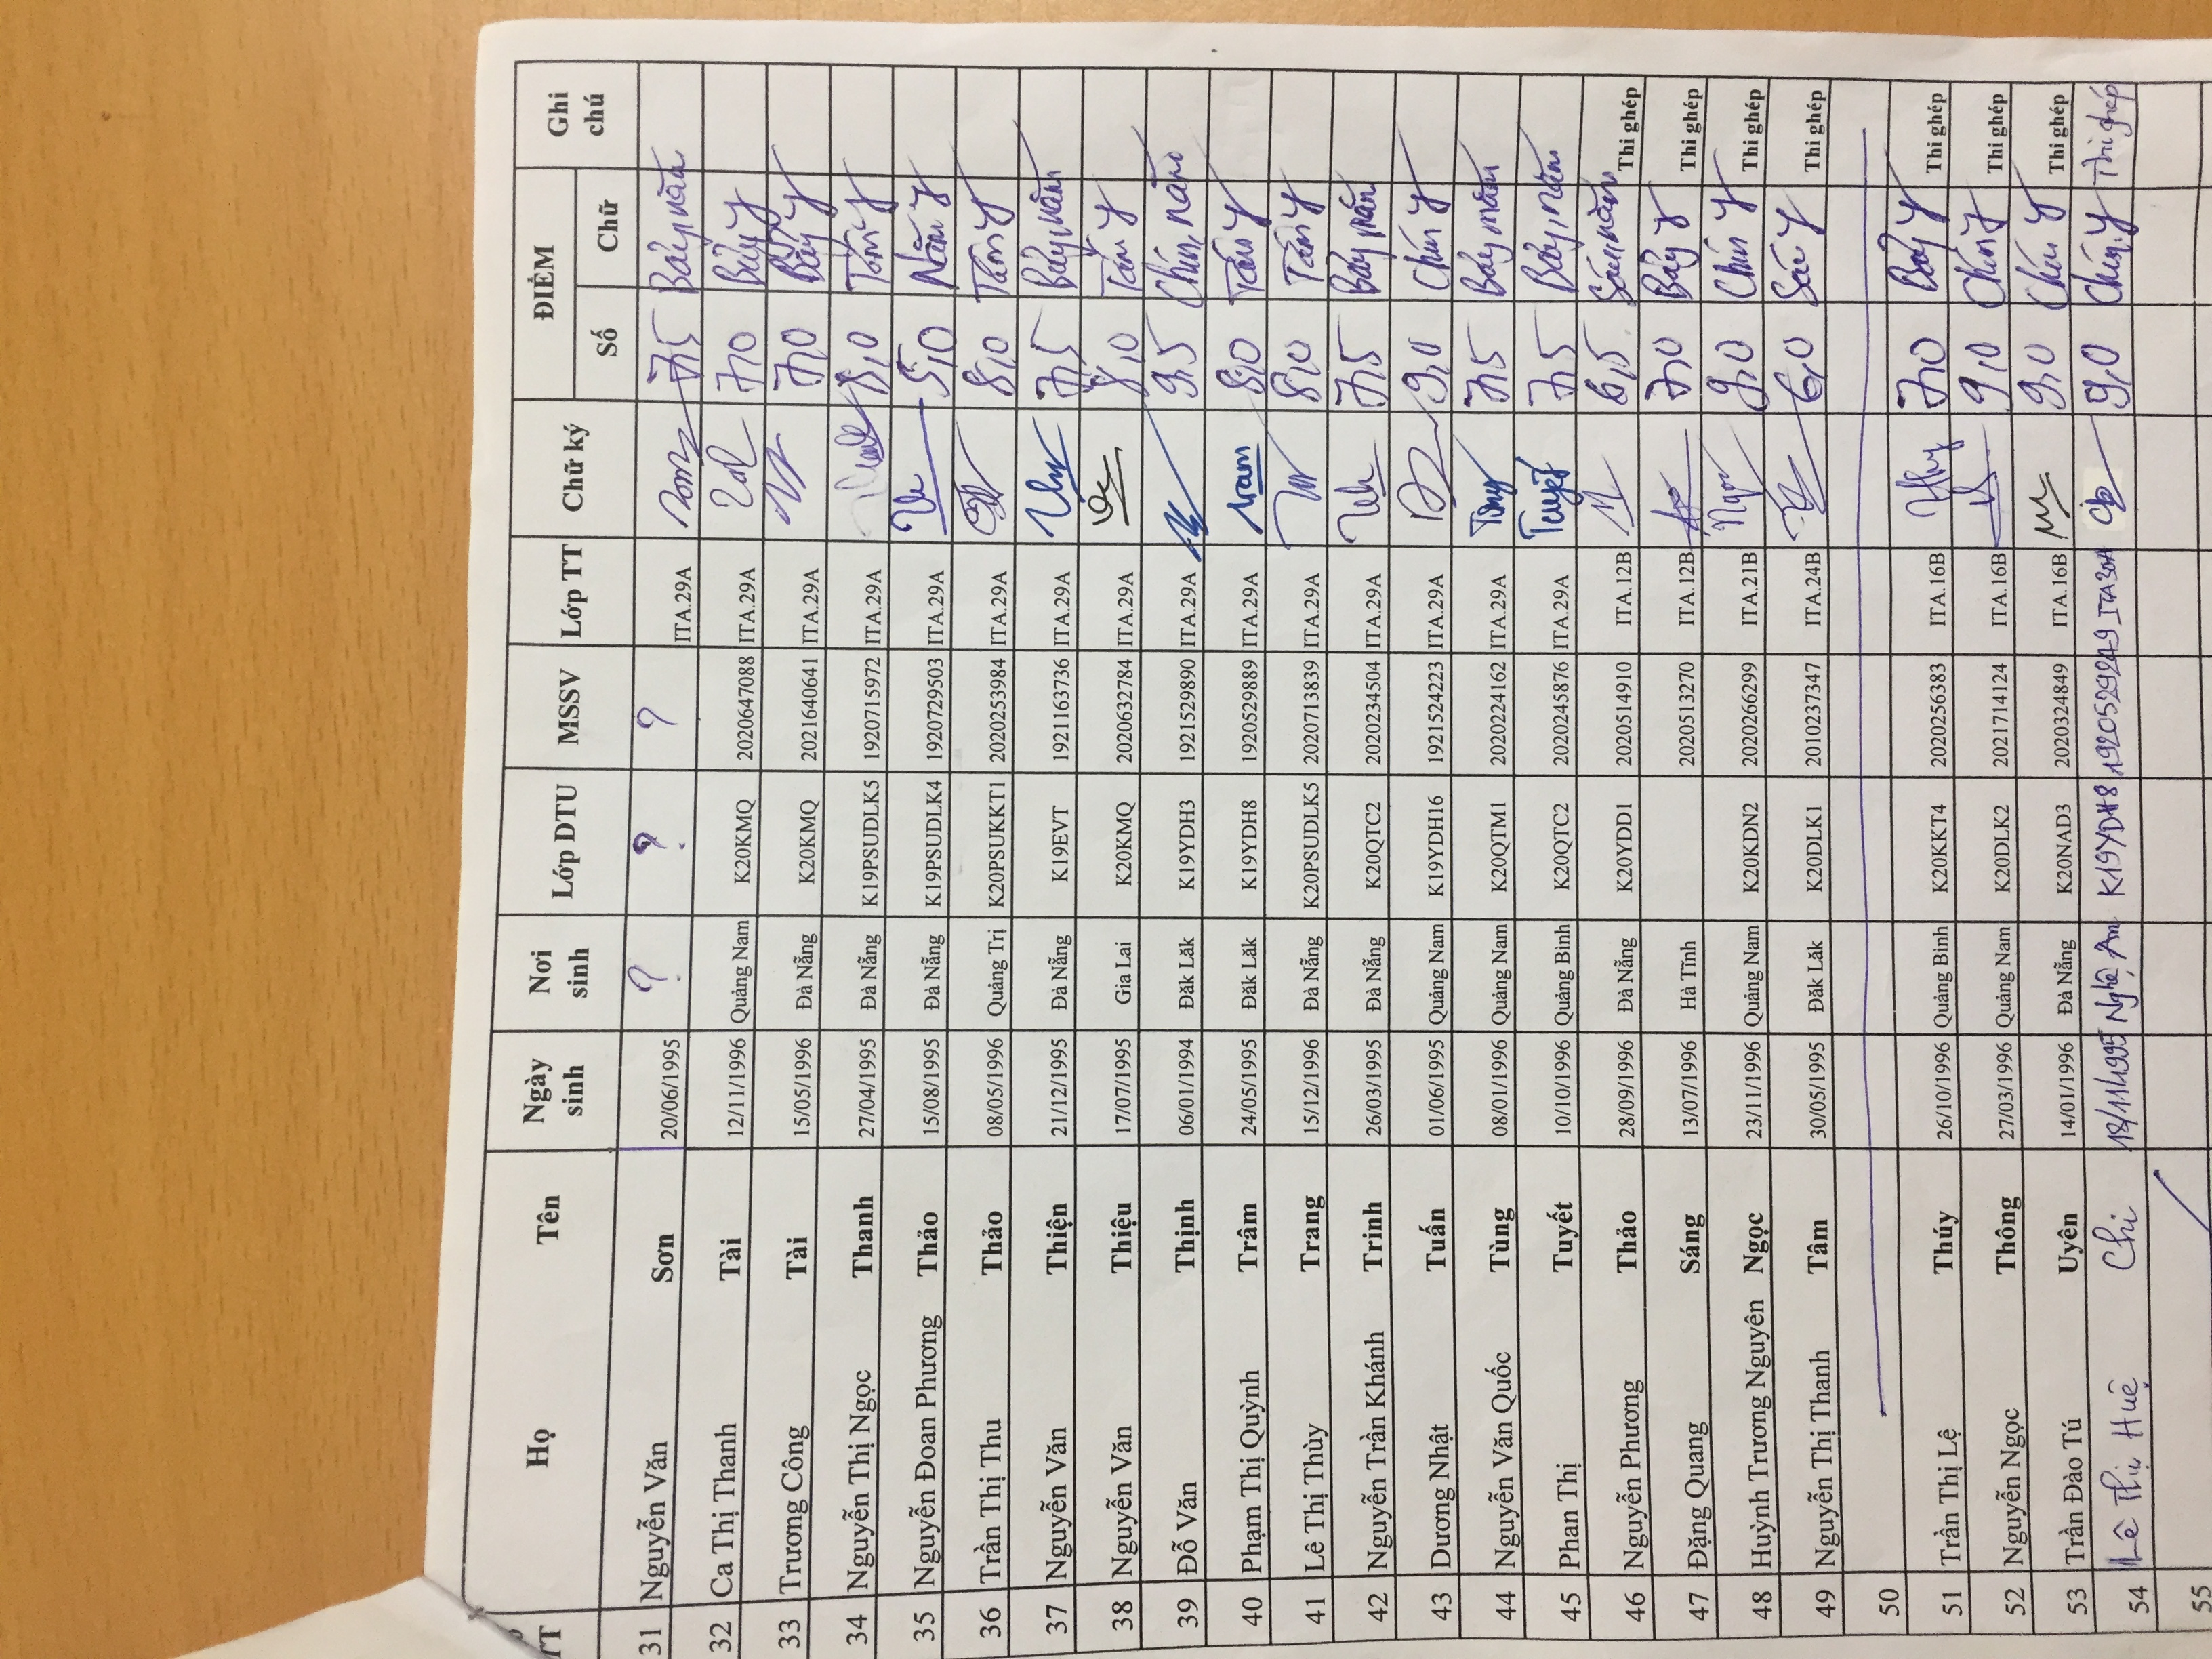 TT Họ Tên Ngày sinh Nơi sinh Lớp DTU MSSV Lớp TT Chữ ký ĐIỂM Ghi chú
Số Chữ
31 Nguyễn Văn Sơn 20/06/1995 ? ? ? ITA.29A 7,5 Bảy, năm
32 Ca Thị Thanh Tài 12/11/1996 Quảng Nam K20KMQ 2020647088 ITA.29A 7,0 Bảy y
33 Trương Công Tài 15/05/1996 Đà Nẵng K20KMQ 2021640641 ITA.29A 7,0 Bảy y
34 Nguyễn Thị Ngọc Thanh 27/04/1995 Đà Nẵng K19PSUDLK5 1920715972 ITA.29A 8,0 Tám y
35 Nguyễn Đoan Phương Thảo 15/08/1995 Đà Nẵng K19PSUDLK4 1920729503 ITA.29A 5,0 Năm y
36 Trần Thị Thu Thảo 08/05/1996 Quảng Trị K20PSUKKT1 2020253984 ITA.29A 8,0 Tám y
37 Nguyễn Văn Thiện 21/12/1995 Đà Nẵng K19EVT 1921163736 ITA.29A 7,5 Bảy, năm
38 Nguyễn Văn Thiệu 17/07/1995 Gia Lai K20KMQ 2020632784 ITA.29A 8,0 Tám y
39 Đỗ Văn Thịnh 06/01/1994 Đăk Lăk K19YDH3 1921529890 ITA.29A 9,5 Chín, năm
40 Phạm Thị Quỳnh Trâm 24/05/1995 Đăk Lăk K19YDH8 1920529889 ITA.29A Nam 8,0 Tám y
41 Lê Thị Thùy Trang 15/12/1996 Đà Nẵng K20PSUDLK5 2020713839 ITA.29A 8,0 Tám y
42 Nguyễn Trần Khánh Trinh 26/03/1995 Đà Nẵng K20QTC2 2020234504 ITA.29A 7,5 Bảy, năm
43 Dương Nhật Tuấn 01/06/1995 Quảng Nam K19YDH16 1921524223 ITA.29A 9,0 Chín y
44 Nguyễn Văn Quốc Tùng 08/01/1996 Quảng Nam K20QTM1 2020224162 ITA.29A Tùng 7,5 Bảy, năm
45 Phan Thị Tuyết 10/10/1996 Quảng Bình K20QTC2 2020245876 ITA.29A Tuyết 7,5 Bảy, năm
46 Nguyễn Phương Thảo 28/09/1996 Đà Nẵng K20YDD1 2020514910 ITA.12B 6,5 Sáu, năm Thi ghép
47 Đặng Quang Sáng 13/07/1996 Hà Tĩnh 2020513270 ITA.12B 7,0 Bảy y Thi ghép
48 Huỳnh Trương Nguyên Ngọc 23/11/1996 Quảng Nam K20KDN2 2020266299 ITA.21B 9,0 Chín y Thi ghép
49 Nguyễn Thị Thanh Tâm 30/05/1995 Đăk Lăk K20DLK1 2010237347 ITA.24B 6,0 Sáu y Thi ghép
50
51 Trần Thị Lệ Thúy 26/10/1996 Quảng Bình K20KKT4 2020256383 ITA.16B Thúy 7,0 Bảy y Thi ghép
52 Nguyễn Ngọc Thông 27/03/1996 Quảng Nam K20DLK2 2021714124 ITA.16B 9,0 Chín y Thi ghép
53 Trần Đào Tú Uyên 14/01/1996 Đà Nẵng K20NAD3 2020324849 ITA.16B 9,0 Chín y Thi ghép
54 Lê Thị Huệ Chi 18/11/1995 Nghệ An K19YDH8 1920529249 ITA30A 9,0 Chín y Thi ghép
55